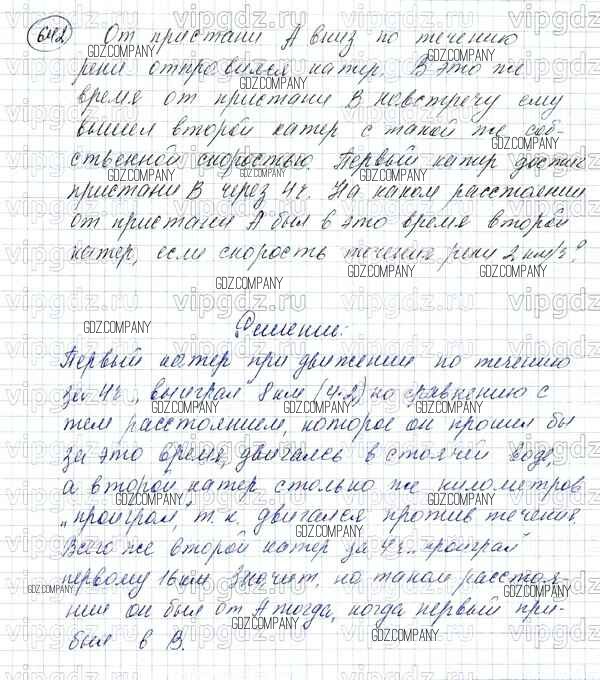 642 От пристани А вниз по течению
реки отправился катер. В это же
время от пристани В навстречу ему
вышел второй катер с такой же соб-
ственной скоростью. Первый катер достиг
пристани В через 4ч. На каком расстоянии
от пристани А был в это время второй
катер, если скорость течения реки 2 км/ч?
Решение:
Первый катер при движении по течению
за 4ч „выиграл 8км (4·2) по сравнению с
тем расстоянием, которое он прошел бы
за это время, двигаясь в стоячей воде,
а второй катер столько же километров
„проиграл", т.к. двигался против течения.
Всего же второй катер за 4ч „проиграл
первому 16км. Значит, на таком расстоя-
нии он был от А тогда, когда первый при-
был в В.